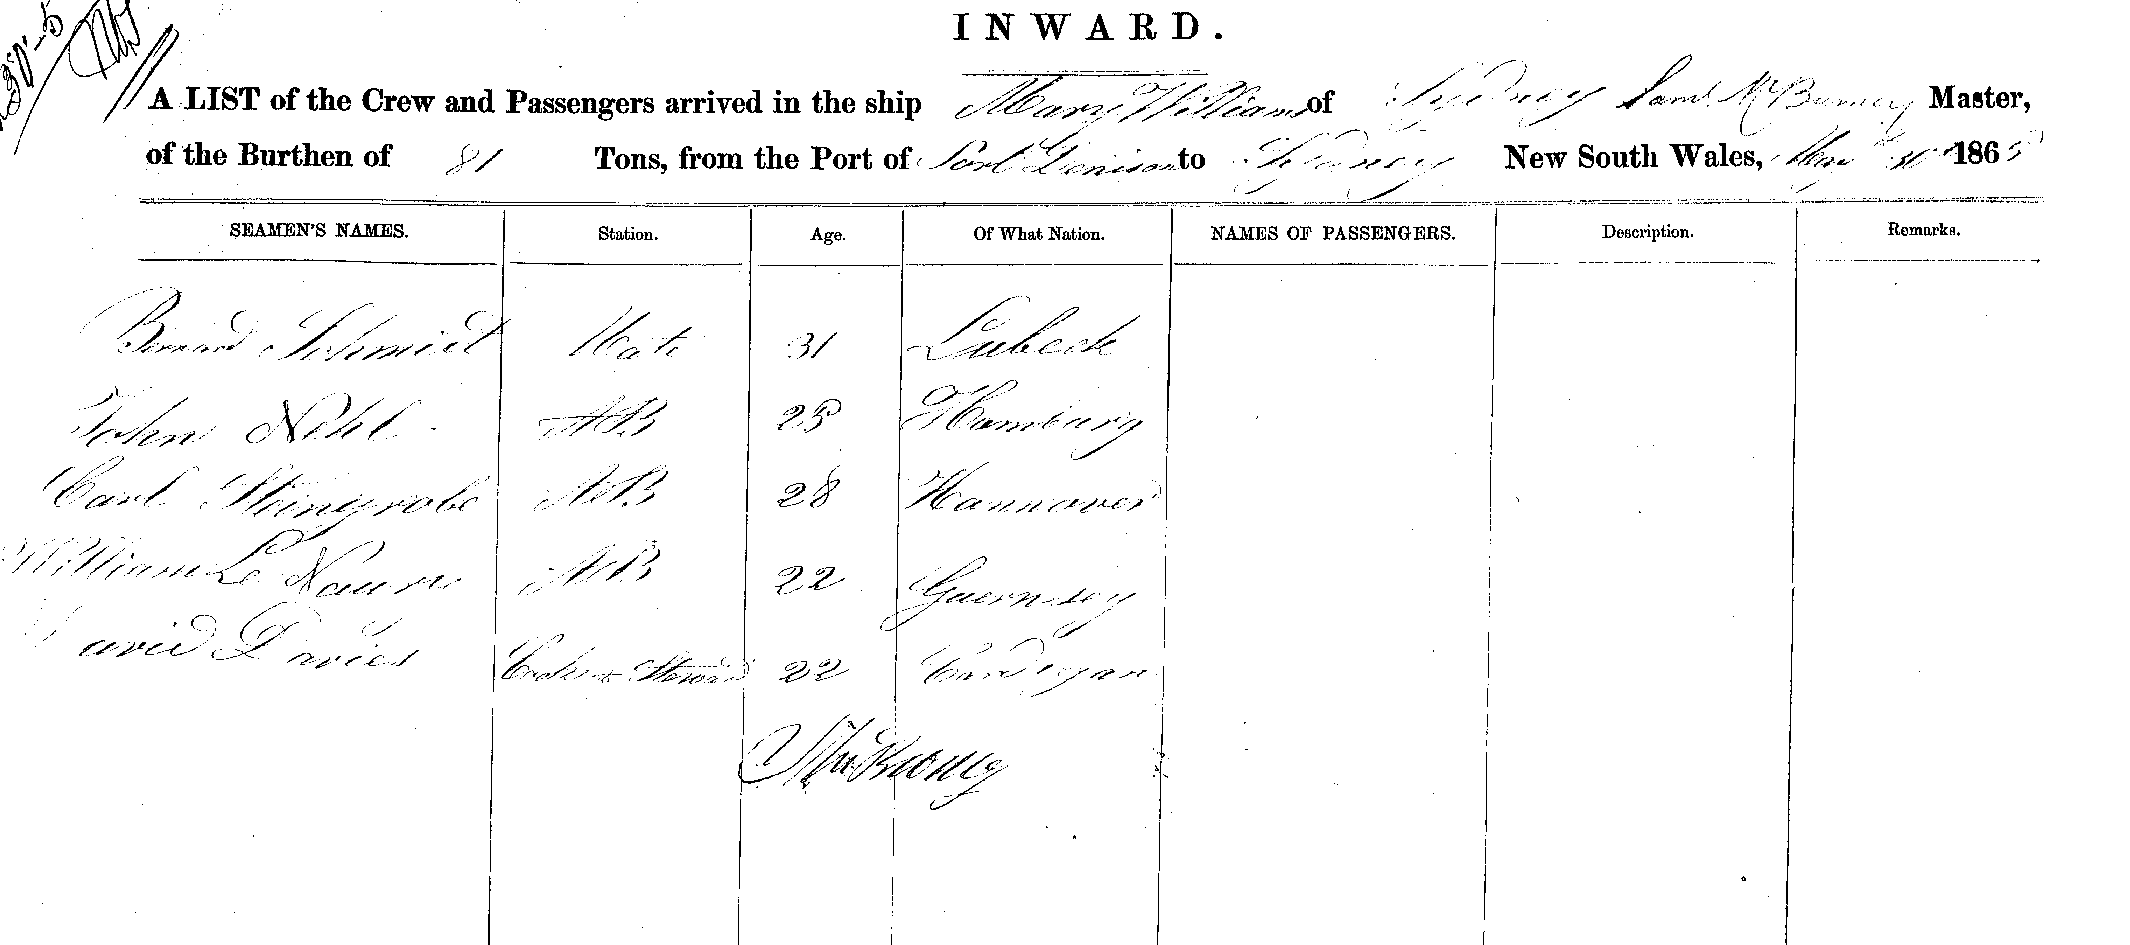 INWARD.
A LIST of the Crew and Passengers arrived in the ship Mary Williams of Sydney Saml McBurney Master,
of the Burthen of 81 Tons, from the Port of Port Denison to Sydney New South Wales, May 1865
SEAMEN'S NAMES. Station. Age. Of What Nation. NAMES OF PASSENGERS. Description. Remarks.
Bernard Schmidt Mate 31 Lubeck
John Nehl AB 25 Hamburg
Carl Steingrobe AB 28 Hannover
William Le AB 22 Guernsey
David Davies Cook & Steward 22 Cardigan